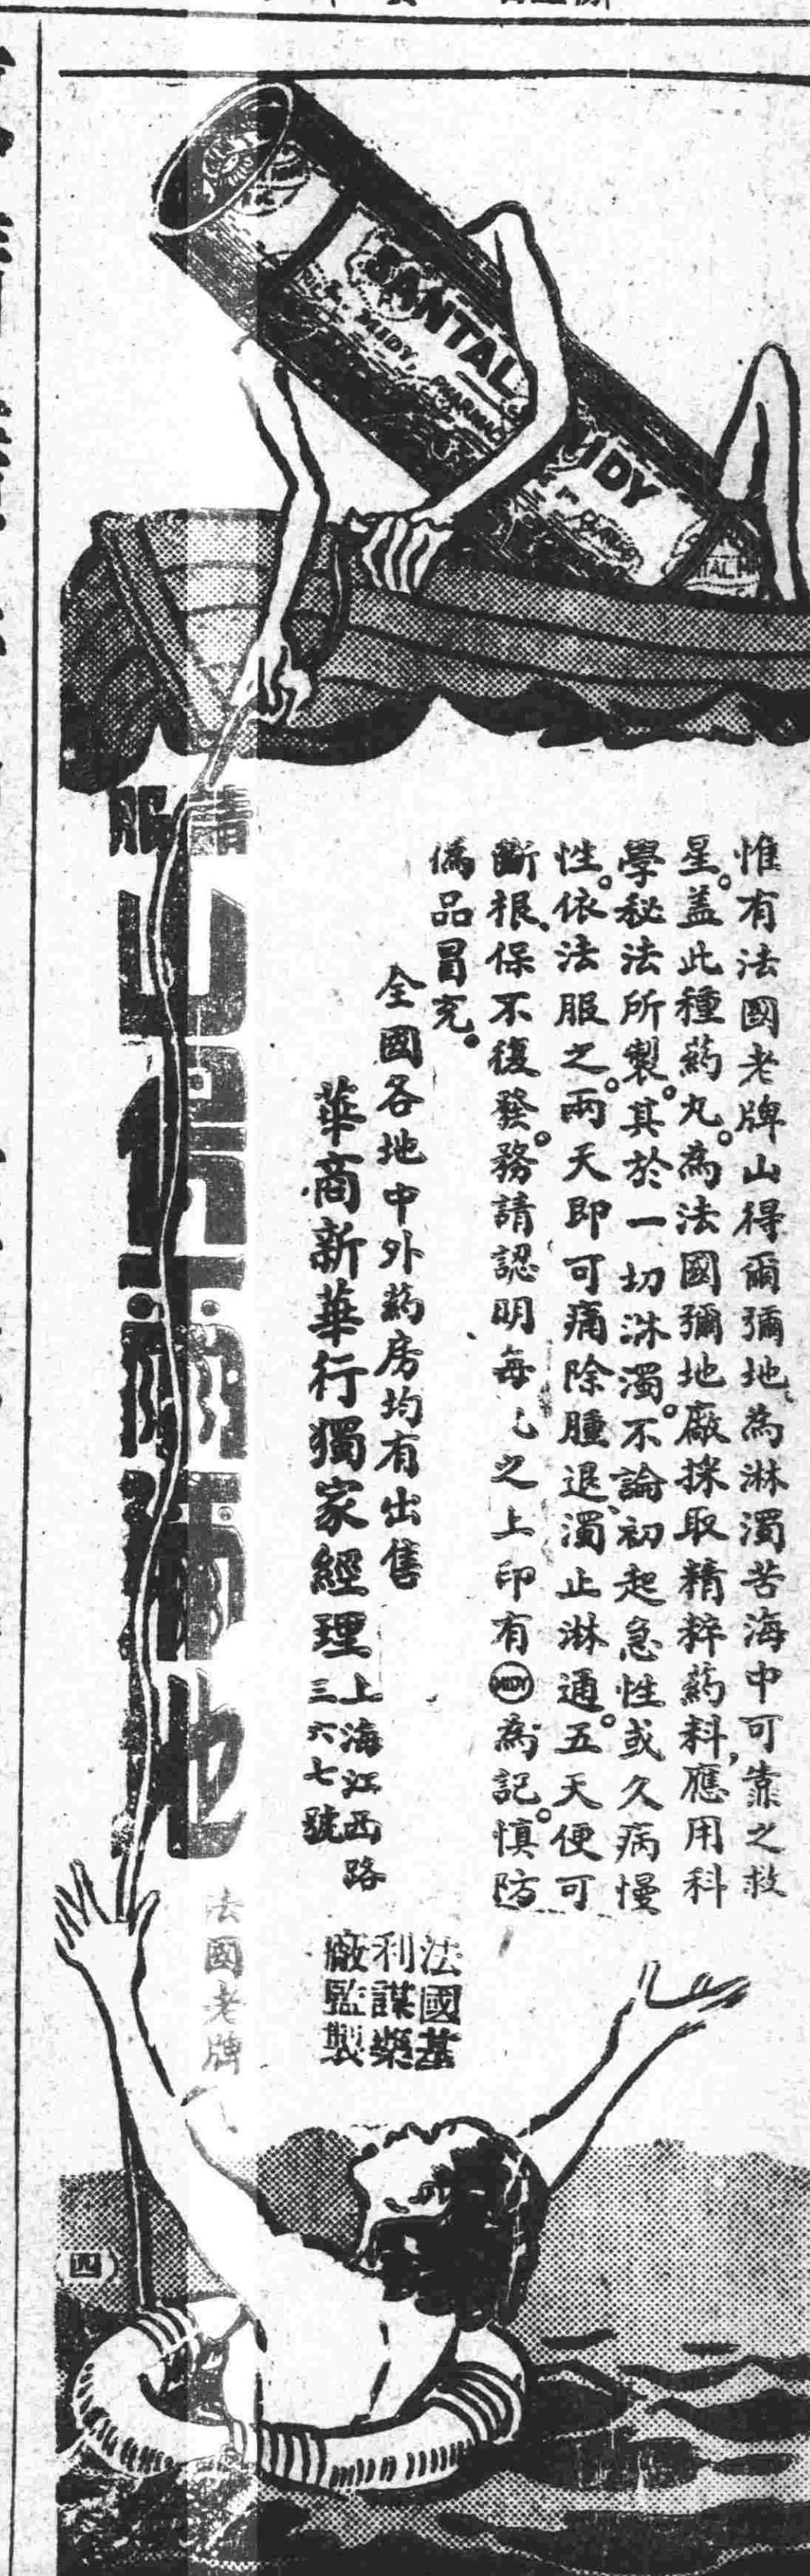 SANTAL
MIDY, PHARMAC
IDY
惟有法國老牌山得爾彌地、為淋濁苦海中可靠之救
星。蓋此種藥丸。為法國彌地廠採取精粹藥料，應用科
學秘法所製。其於一切淋濁。不論初起急性或久病慢
性。依法服之。兩天即可痛除腫退、濁止淋通。五天便可
斷根、保不復發。務請認明每 之上印有MIDY為記。慎防
偽品冒充。
全國各地中外藥房均有出售
華商新華行獨家經理
上海江西路
三六七號
法國基
利謀藥
廠監製
請服
山得爾彌地
法國老牌
(四)